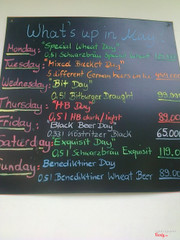 What's up in May
Monday: "Special Wheat Day"
0,5l Schwarzbräu Special
Tuesday: "Mixed Bracket Day"
5 different German
Wednesday: "Bit Day"
0,5l Bitburger Draught
Thursday: "HB Day"
0,5l HB dark/light 89.000
Friday: "Black Beer Day"
0,33l Köstritzer Black 65.000
Saturday: Exquisit Day"
0,5l Schwarzbräu Exquisit 119.000
Sunday: Benediktiner Day"
0,5l Benediktiner Wheat Beer 89.000